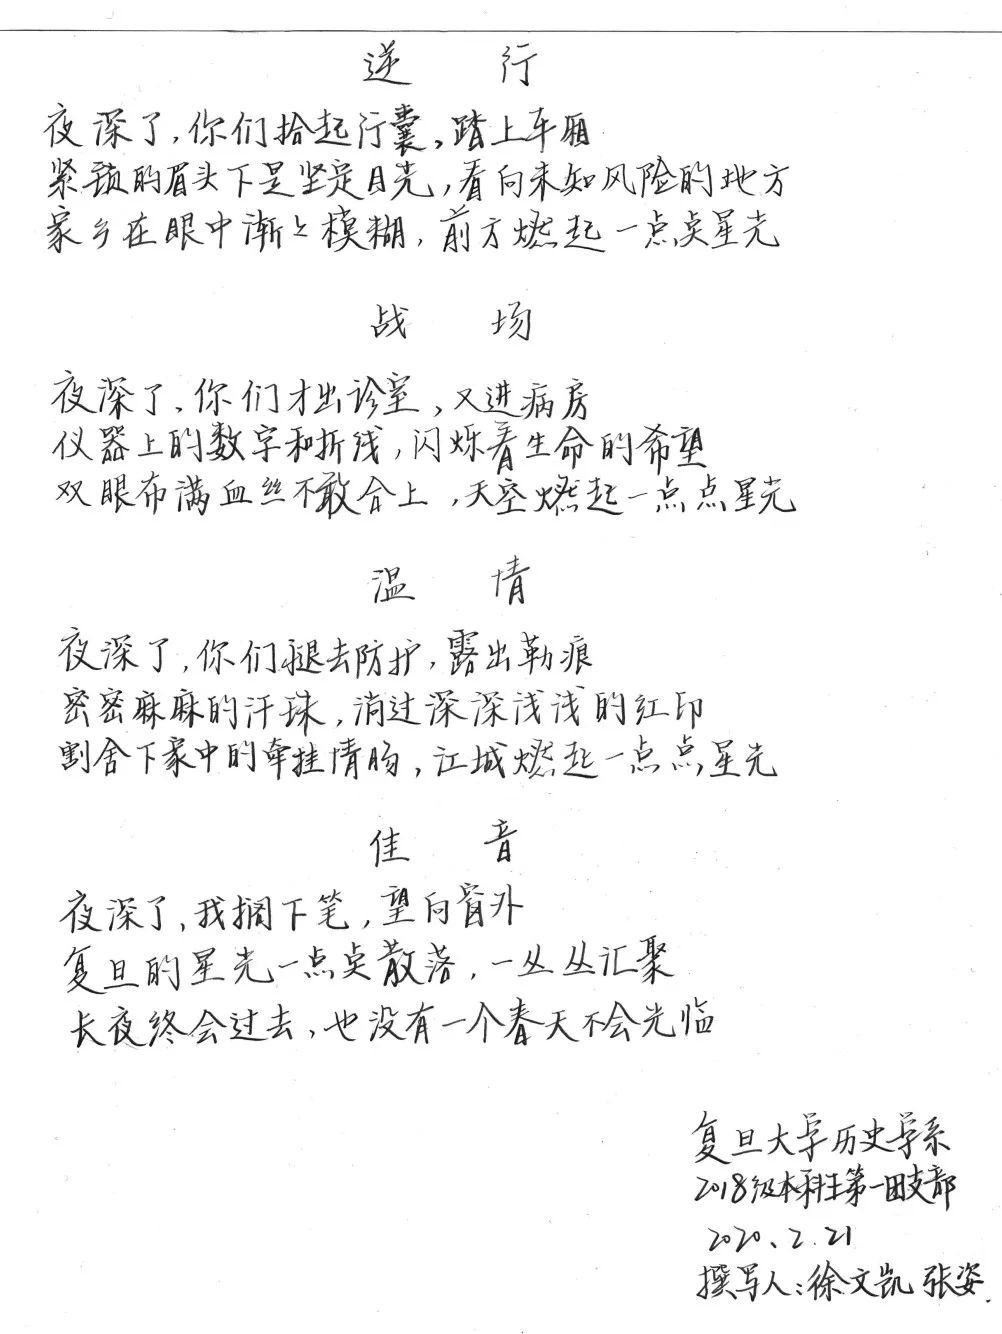 逆 行
夜深了，你们拾起行囊，踏上车厢
紧锁的眉头下是坚定目光，看向未知风险的地方
家乡在眼中渐々模糊，前方燃起一点点星光
战 场
夜深了，你们才出诊室，又进病房
仪器上的数字和折线，闪烁着生命的希望
双眼布满血丝不敢合上，天空燃起一点点星光
温 情
夜深了，你们腿去防护，露出勒痕
密密麻麻的汗珠，淌过深深浅浅的红印
割舍下家中的牵挂情肠，江城燃起一点点星光
佳 音
夜深了，我搁下笔，望向窗外
复旦的星光一点点散落，一丛丛汇聚
长夜终会过去，也没有一个春天不会光临
复旦大学历史学系
2018级本科生第一团支部
2020.2.21
撰写人：徐文凯 张姿